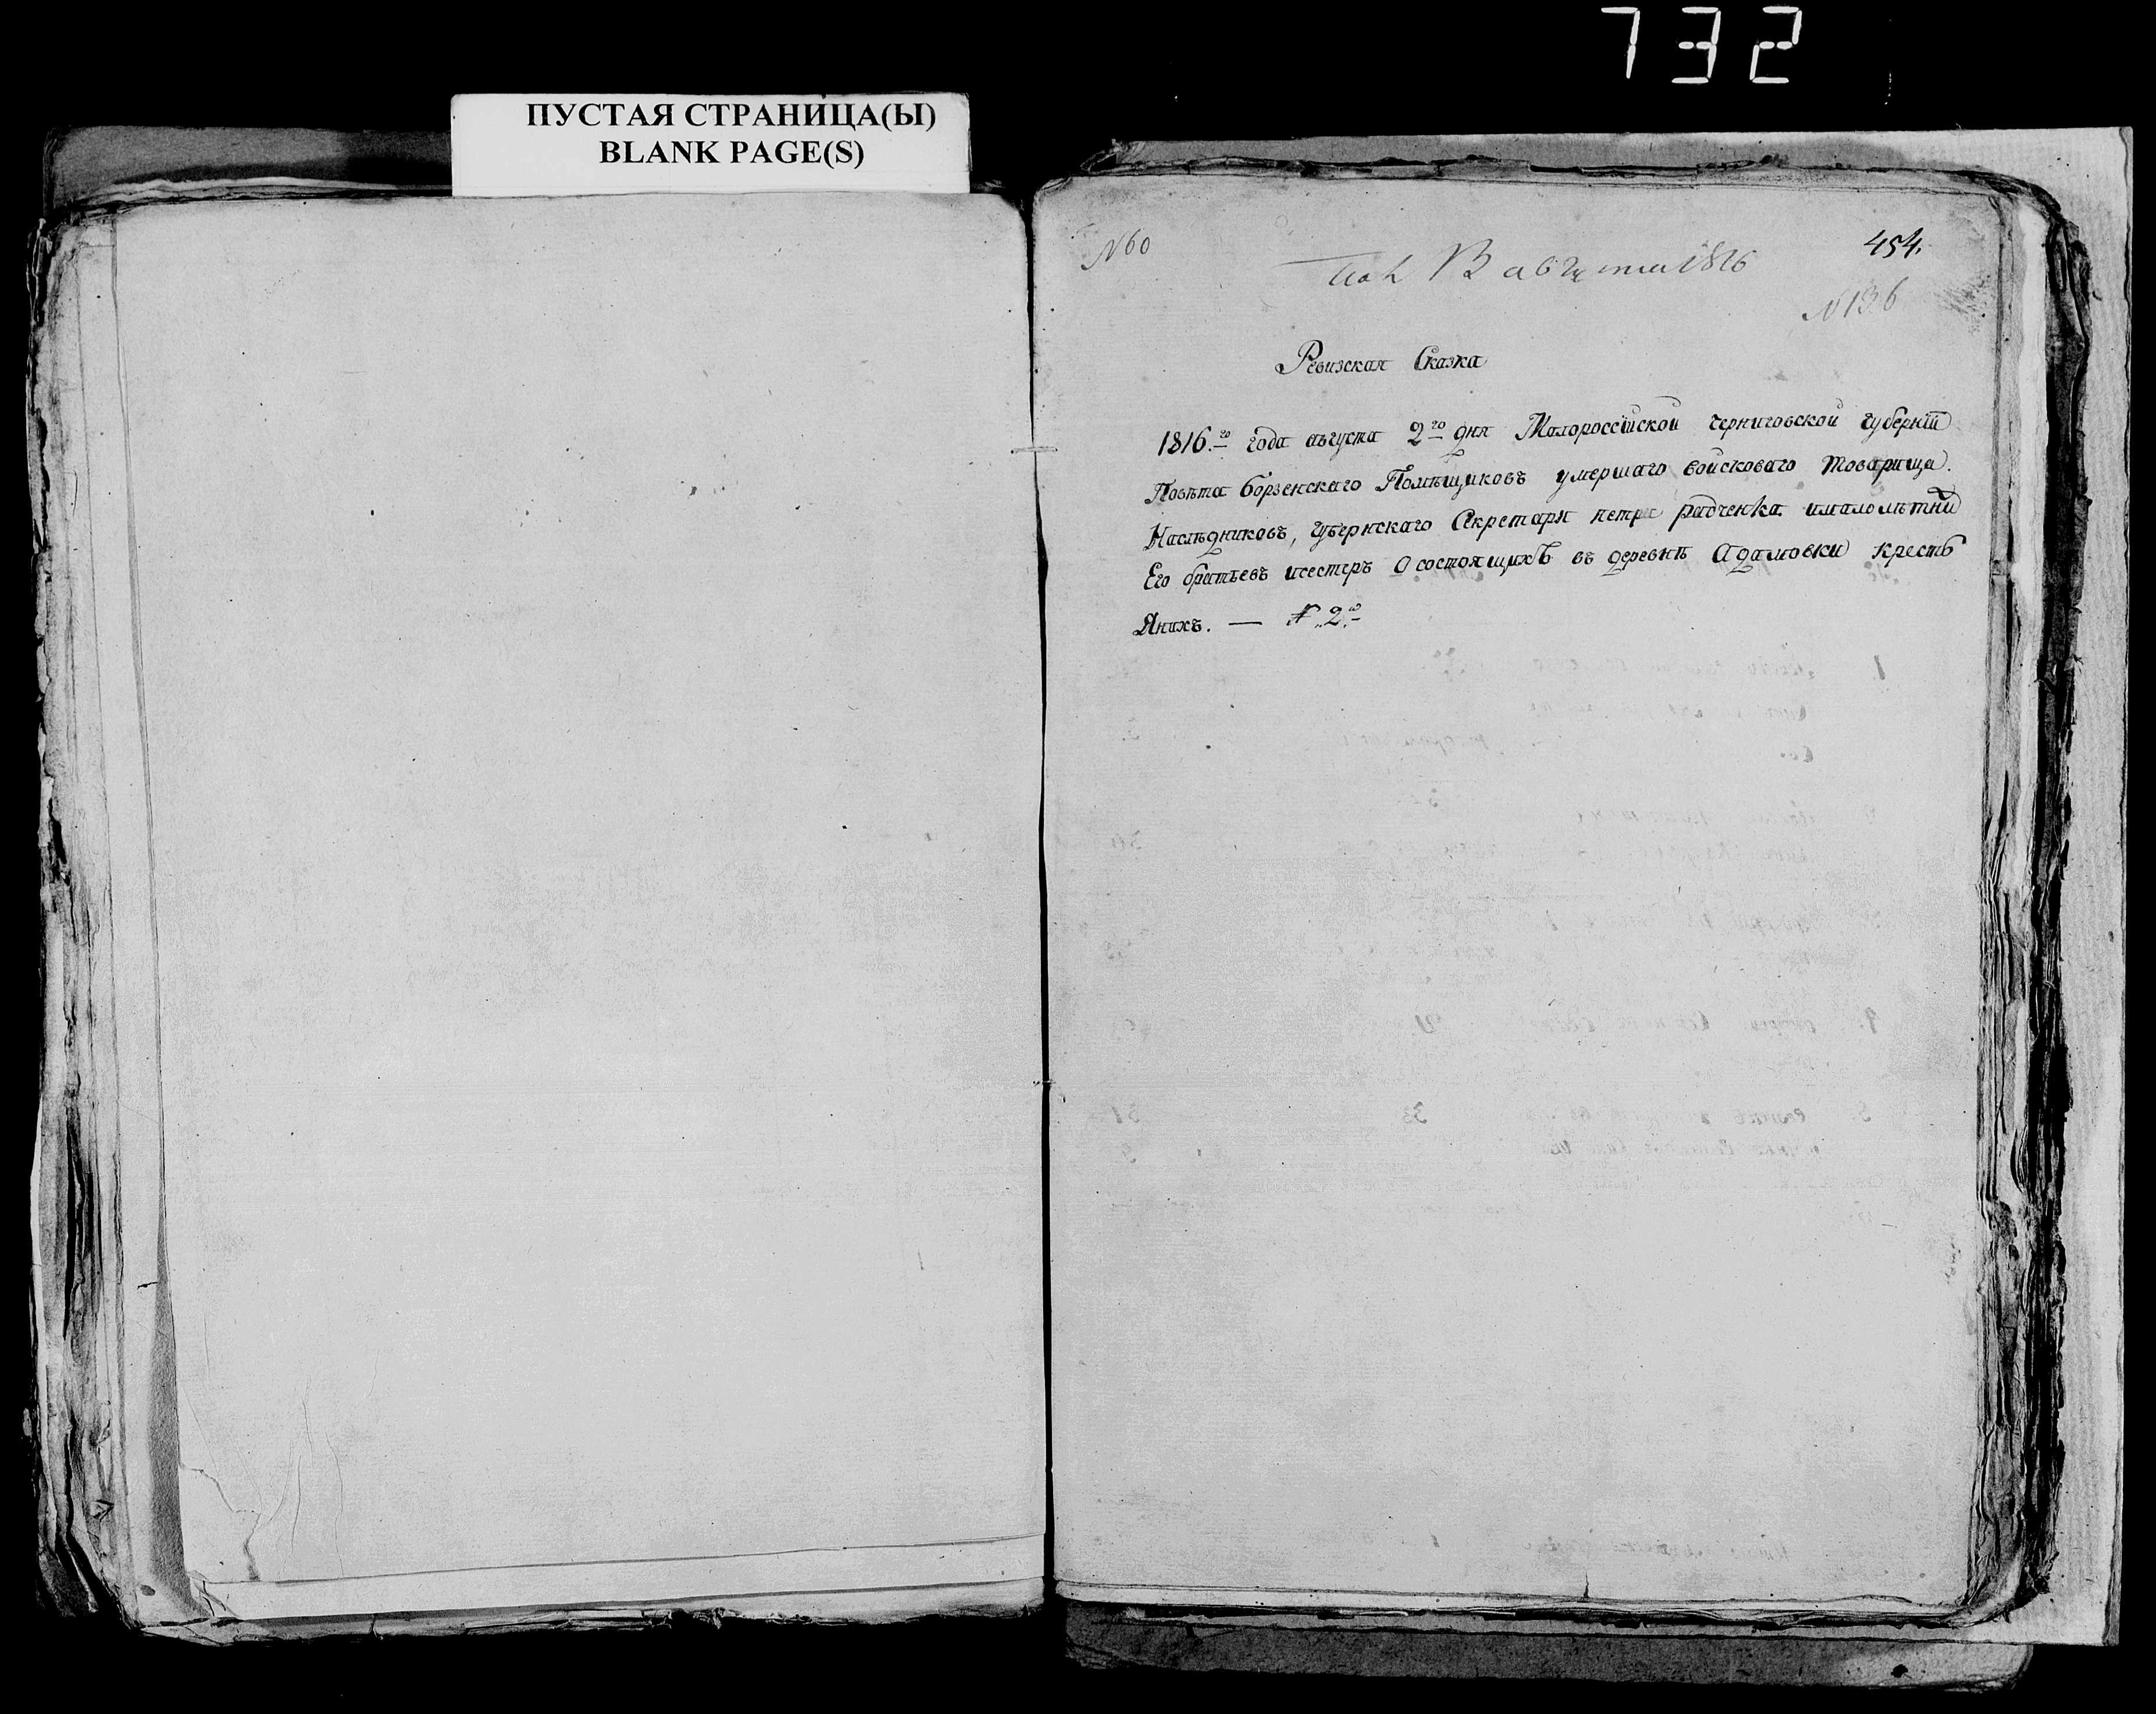 732
ПУСТАЯ СТРАНИЦА(Ы)
BLANK PAGE(S)
N 60
454.
13 августа 1816
N 136
Ревизская Сказка
1816.го года августа 2го дня Малороссійской черниговской губерніи
Повѣта борзенскаго Помѣщиковъ умершаго войсковаго товарища.
Наслѣдниковъ, губернскаго Секретаря петра радченка ималолѣтнй
Его братьевъ исестеръ О состоящихъ въ деревнѣ Адамовки кресть
Янихъ. — № 2.